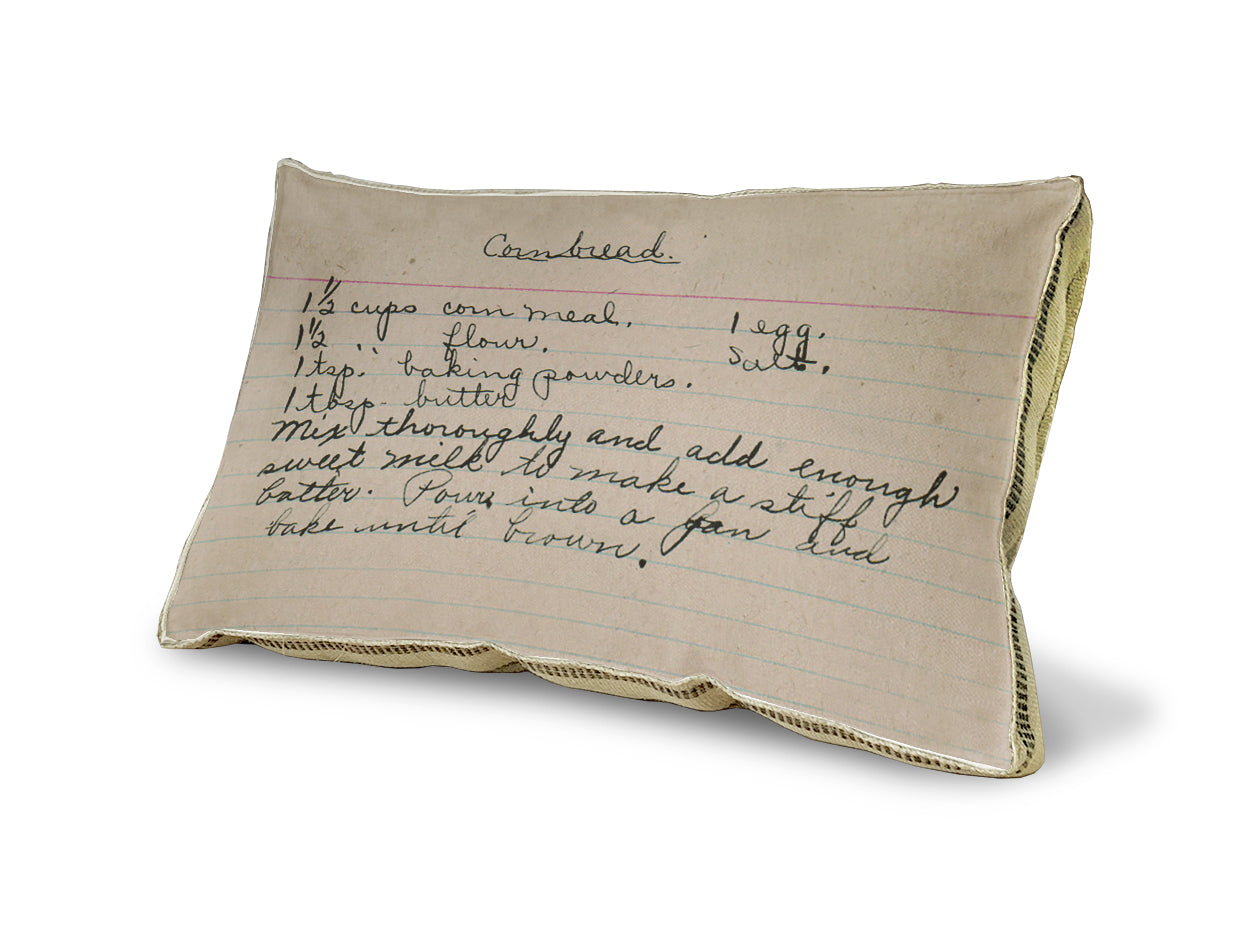 Cornbread.
1 1/2 cups corn meal. 1 egg.
1 1/2 " flour. Salt.
1 tsp. baking powders.
1 tbsp. butter
Mix thoroughly and add enough
sweet milk to make a stiff
batter. Pour into a pan and
bake until brown.